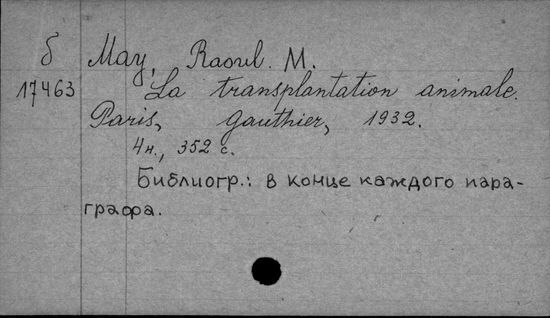 б May, Raoul. M.
17463 La transplantation animale.
Paris, Gauthier, 1932.
4н., 352 с.
Библиогр.: в конце каждого пара-
графа.